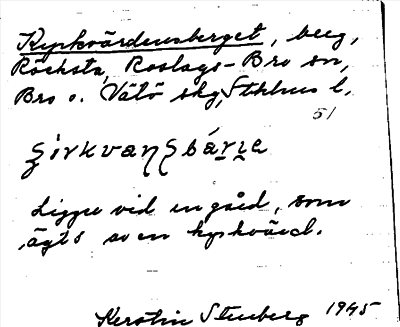 Kyrkvärdensberget, berg,
Röcksta, Roslags-Bro sn,
Bro o. Vätö skg, Sthlms l.
51
Ligger vid en gård, som
ägts av en kyrkvärd.
Kerstin Stenberg 1945